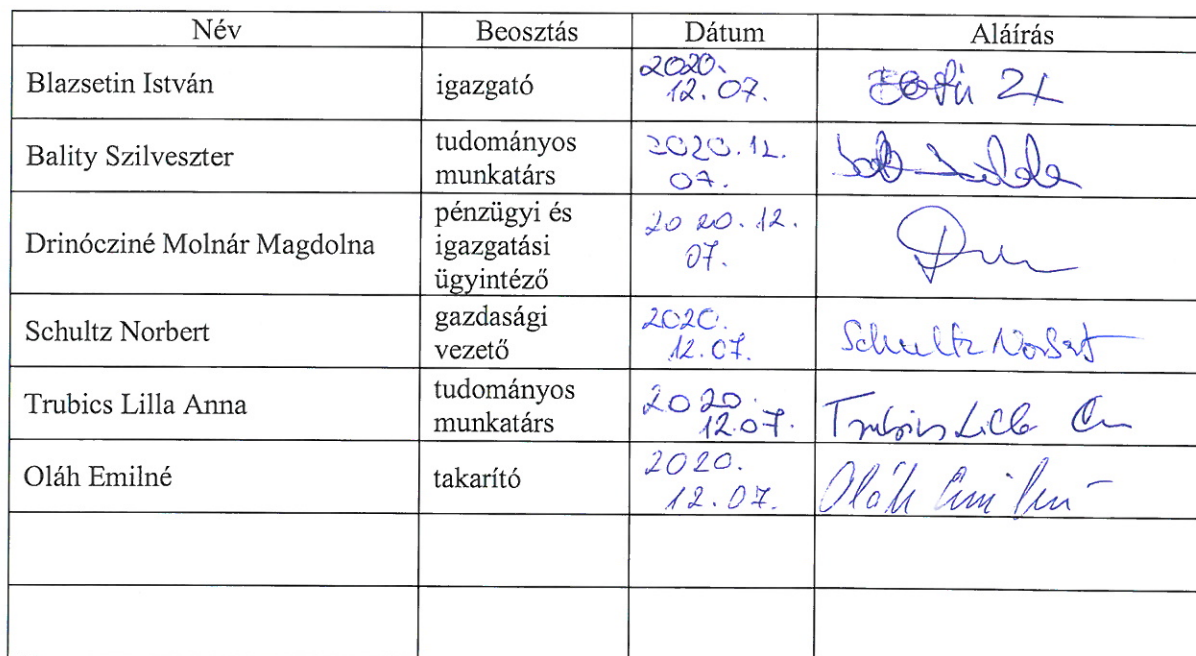 Név Beosztás Dátum Aláírás
Blazsetin István igazgató 2020.
12.07.
Bality Szilveszter tudományos
munkatárs 2020.12.
07.
Drinócziné Molnár Magdolna pénzügyi és
igazgatási
ügyintéző 2020.12.
07.
Schultz Norbert gazdasági
vezető 2020.
12.07. Schultz Norbert
Trubics Lilla Anna tudományos
munkatárs 2020.
12.07. Trubics Lilla
Oláh Emilné takarító 2020.
12.07. Oláh Emilné